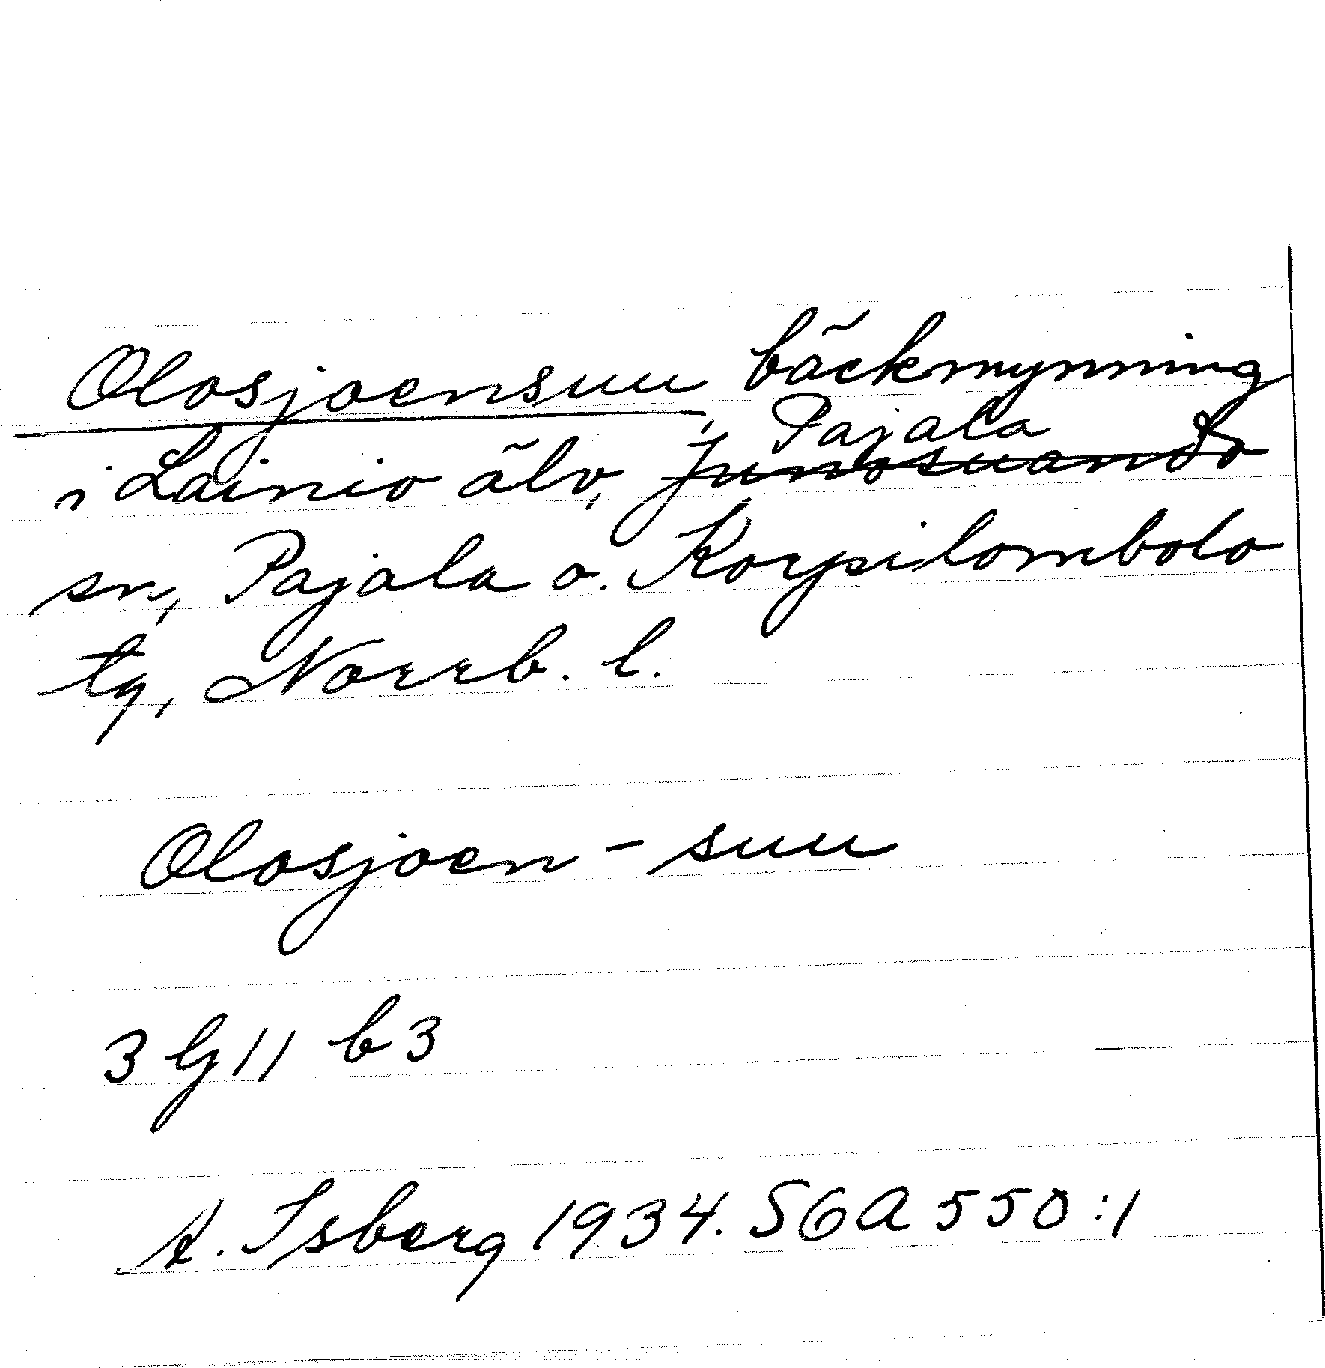 Olosjoensuu, bäckmynning
Pajala
i Lainio älv, Junosuando
sn, Pajala o. Korpilombolo
tg, Norrb. l.
Olosjoen - suu
3 G 11 b 3
A. Isberg 1934. SGA 550:1